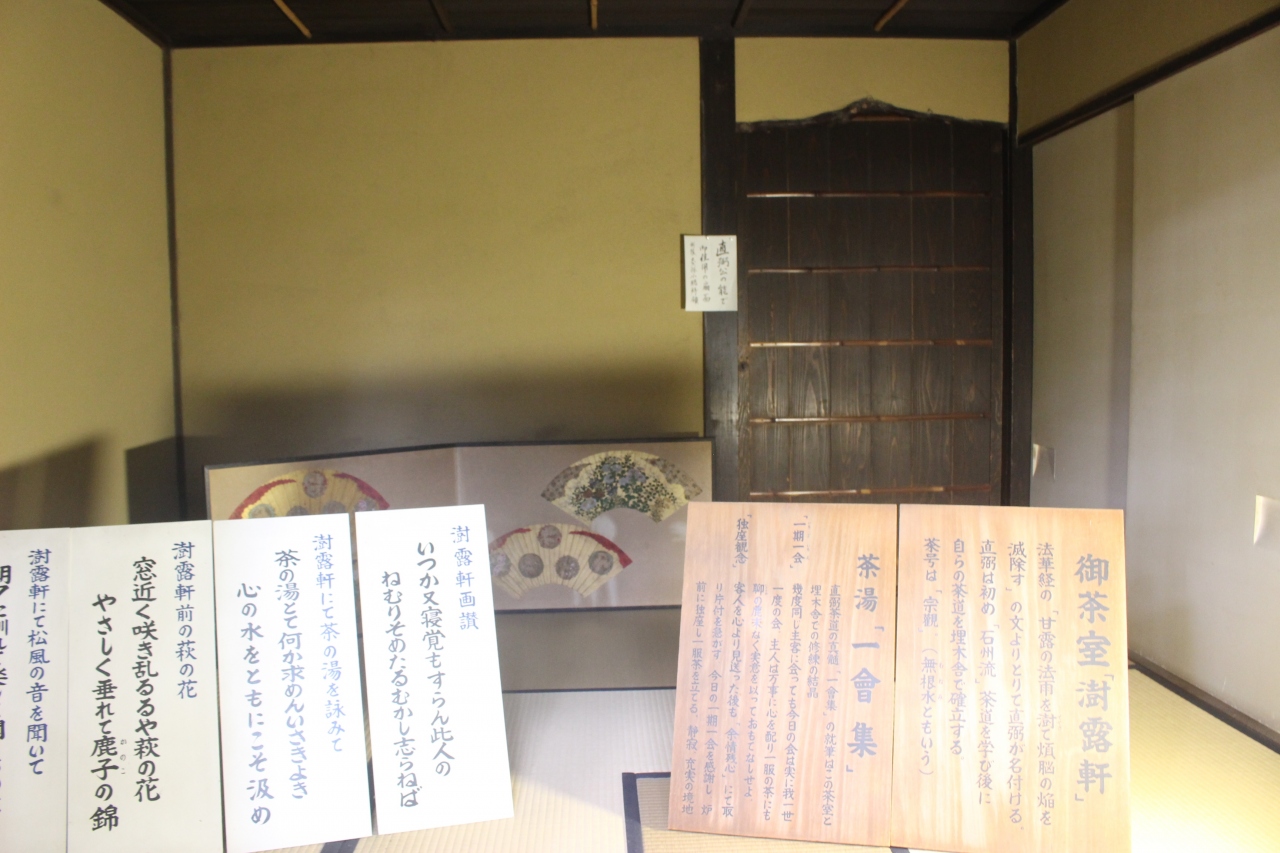 御茶室「澍露軒」
法華経の「甘露の法雨を澍て煩脳の焔を
滅除す」の文よりとりて直弼が名付ける。
直弼は初め「石州流」茶道を学び後に
自らの茶道を埋木舎で確立する。
茶号は「宗観」(無根水ともいう)
茶湯「一會集」
直弼茶道の真髄、「一會集」の執筆はこの茶室と
埋木舎での修練の結晶
「一期一会」 幾度同し主客に会っても今日の会は実に我一世
一度の会、主人は万事に心を配り一服の茶にも
「独座観念」 客人を心より見送った後も、「余情残心」にて取
り片付を急がず、今日の一期一会を感謝し炉
前に独座し一服茶を立てる、静寂、充実の境地
直弼公の能て
澍露軒画讃
いつか又寝覚もすらん此人の
ねむりそめたるむかし志らねば
澍露軒にて茶の湯を詠みて
茶の湯とて何か求めんいさぎよき
心の水をともにこそ汲め
澍露軒前の萩の花
窓近く咲き乱るるや萩の花
やさしく垂れて鹿子の錦
かのこ
澍露軒にて松風の音を聞いて